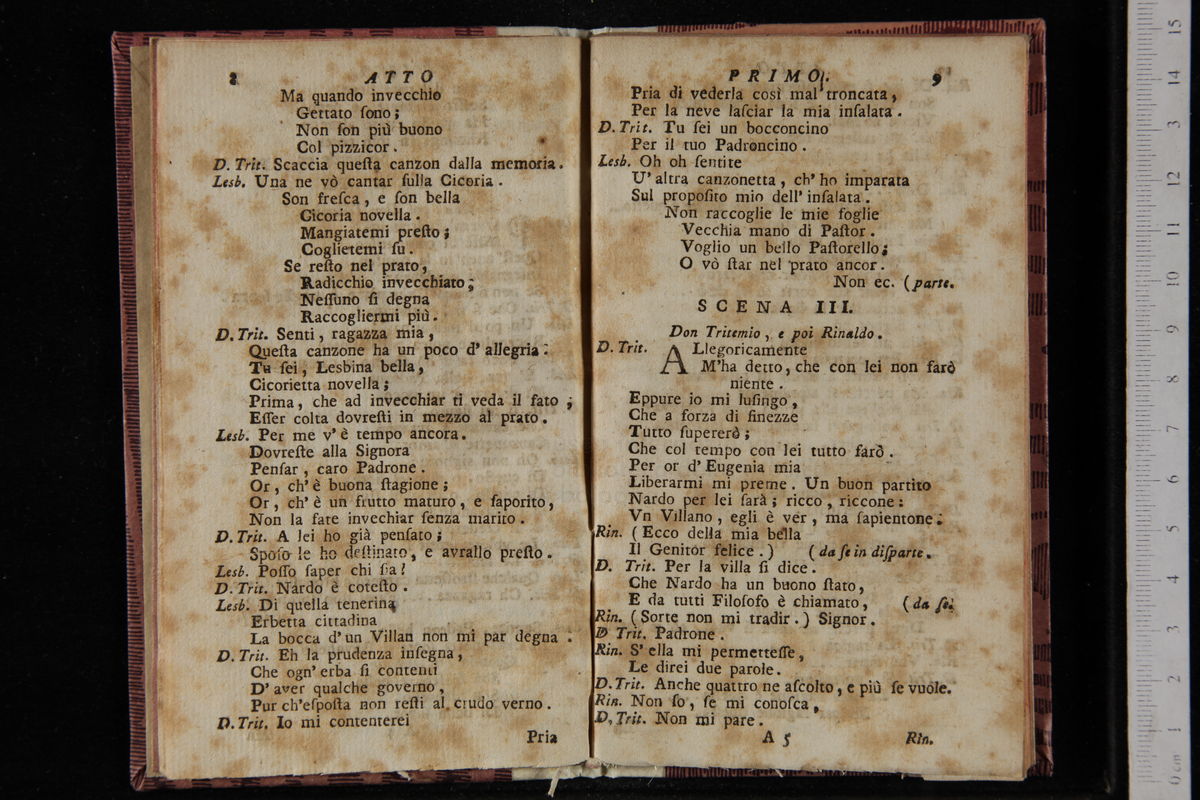 8 ATTO
Ma quando invecchio
Gettato ſono;
Non ſon più buono
Col pizzicor.
D. Trit. Scaccia queſta canzon dalla memoria.
Lesb. Una ne vò cantar ſulla Cicoria.
Son freſca, e ſon bella
Cicoria novella.
Mangiatemi preſto;
Coglietemi ſu.
Se reſto nel prato,
Radicchio invecchiato;
Neſſuno ſi degna
Raccogliermi più.
D. Trit. Senti, ragazza mia,
Queſta canzone ha un poco d'allegria:
Tu ſei, Lesbina bella,
Cicorietta novella;
Prima, che ad invecchiar ti veda il fato;
Eſſer colta dovreſti in mezzo al prato.
Lesb. Per me v'è tempo ancora.
Dovreſte alla Signora
Penſar, caro Padrone.
Or, ch'è buona ſtagione;
Or, ch'è un frutto maturo, e ſaporito,
Non la fate invechiar ſenza marito.
D. Trit. A lei ho già penſato;
Spoſo le ho deſtinato, e avrallo preſto.
Lesb. Poſſo ſaper chi ſia?
D. Trit. Nardo è coteſto.
Lesb. Di quella tenerina
Erbetta cittadina
La bocca d'un Villan non mi par degna.
D. Trit. Eh la prudenza inſegna,
Che ogn'erba ſi contenti
D'aver qualche governo,
Pur ch'eſpoſta non reſti al crudo verno.
D. Trit. Io mi contenterei
Pria
PRIMO. 9
Pria di vederla così mal troncata,
Per la neve laſciar la mia inſalata.
D. Trit. Tu ſei un bocconcino
Per il tuo Padroncino.
Lesb. Oh oh ſentite
U'altra canzonetta, ch'ho imparata
Sul propoſito mio dell'inſalata.
Non raccoglie le mie foglie
Vecchia mano di Paſtor.
Voglio un bello Paſtorello;
O vò ſtar nel prato ancor.
Non ec. (parte.
SCENA III.
Don Tritemio, e poi Rinaldo.
D. Trit. ALlegoricamente
M'ha detto, che con lei non farò
niente.
Eppure io mi luſingo,
Che a forza di finezze
Tutto ſupererò;
Che col tempo con lei tutto farò.
Per or d'Eugenia mia
Liberarmi mi preme. Un buon partito
Nardo per lei ſarà; ricco, riccone:
Vn Villano, egli è ver, ma ſapientone:
Rin. (Ecco della mia bella
Il Genitor felice.) (da ſe in diſparte.
D. Trit. Per la villa ſi dice.
Che Nardo ha un buono ſtato,
E da tutti Filoſofo è chiamato, (da ſe.
Rin. (Sorte non mi tradir.) Signor.
D Trit. Padrone.
Rin. S'ella mi permetteſſe,
Le direi due parole.
D. Trit. Anche quattro ne aſcolto, e più ſe vuole.
Rin. Non ſo, ſe mi conoſca,
D, Trit. Non mi pare.
A 5 Rin.